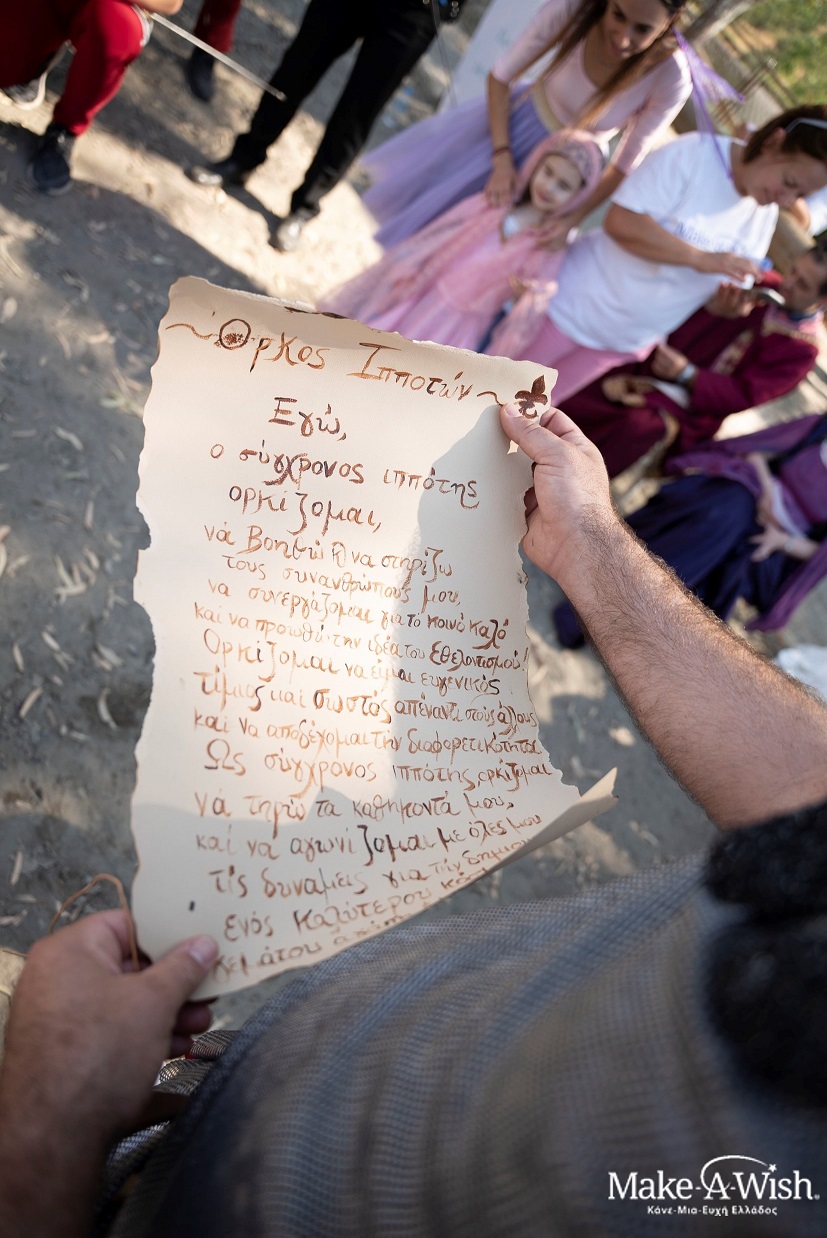 Όρκος Ιπποτών
Εγώ,
ο σύγχρονος ιππότης
ορκίζομαι,
νά βοηθώ & να στηρίζω
τους συνανθρώπους μου,
να συνεργάζομαι για το κοινό καλό
και να προωθώ την ιδέα του Εθελοντισμού!
Ορκίζομαι να είμαι ευγενικός
τίμιος και σωστός απέναντι στους άλλους
και να αποδέχομαι την διαφορετικότητα.
Ως σύγχρονος ιππότης, ορκίζομαι
νά τηρώ τα καθήκοντά μου,
και να αγωνίζομαι με όλες μου
τις δυνάμεις για την
ενός καλύτερου
Make-A-Wish®
Κάνε-Μια-Ευχή Ελλάδος